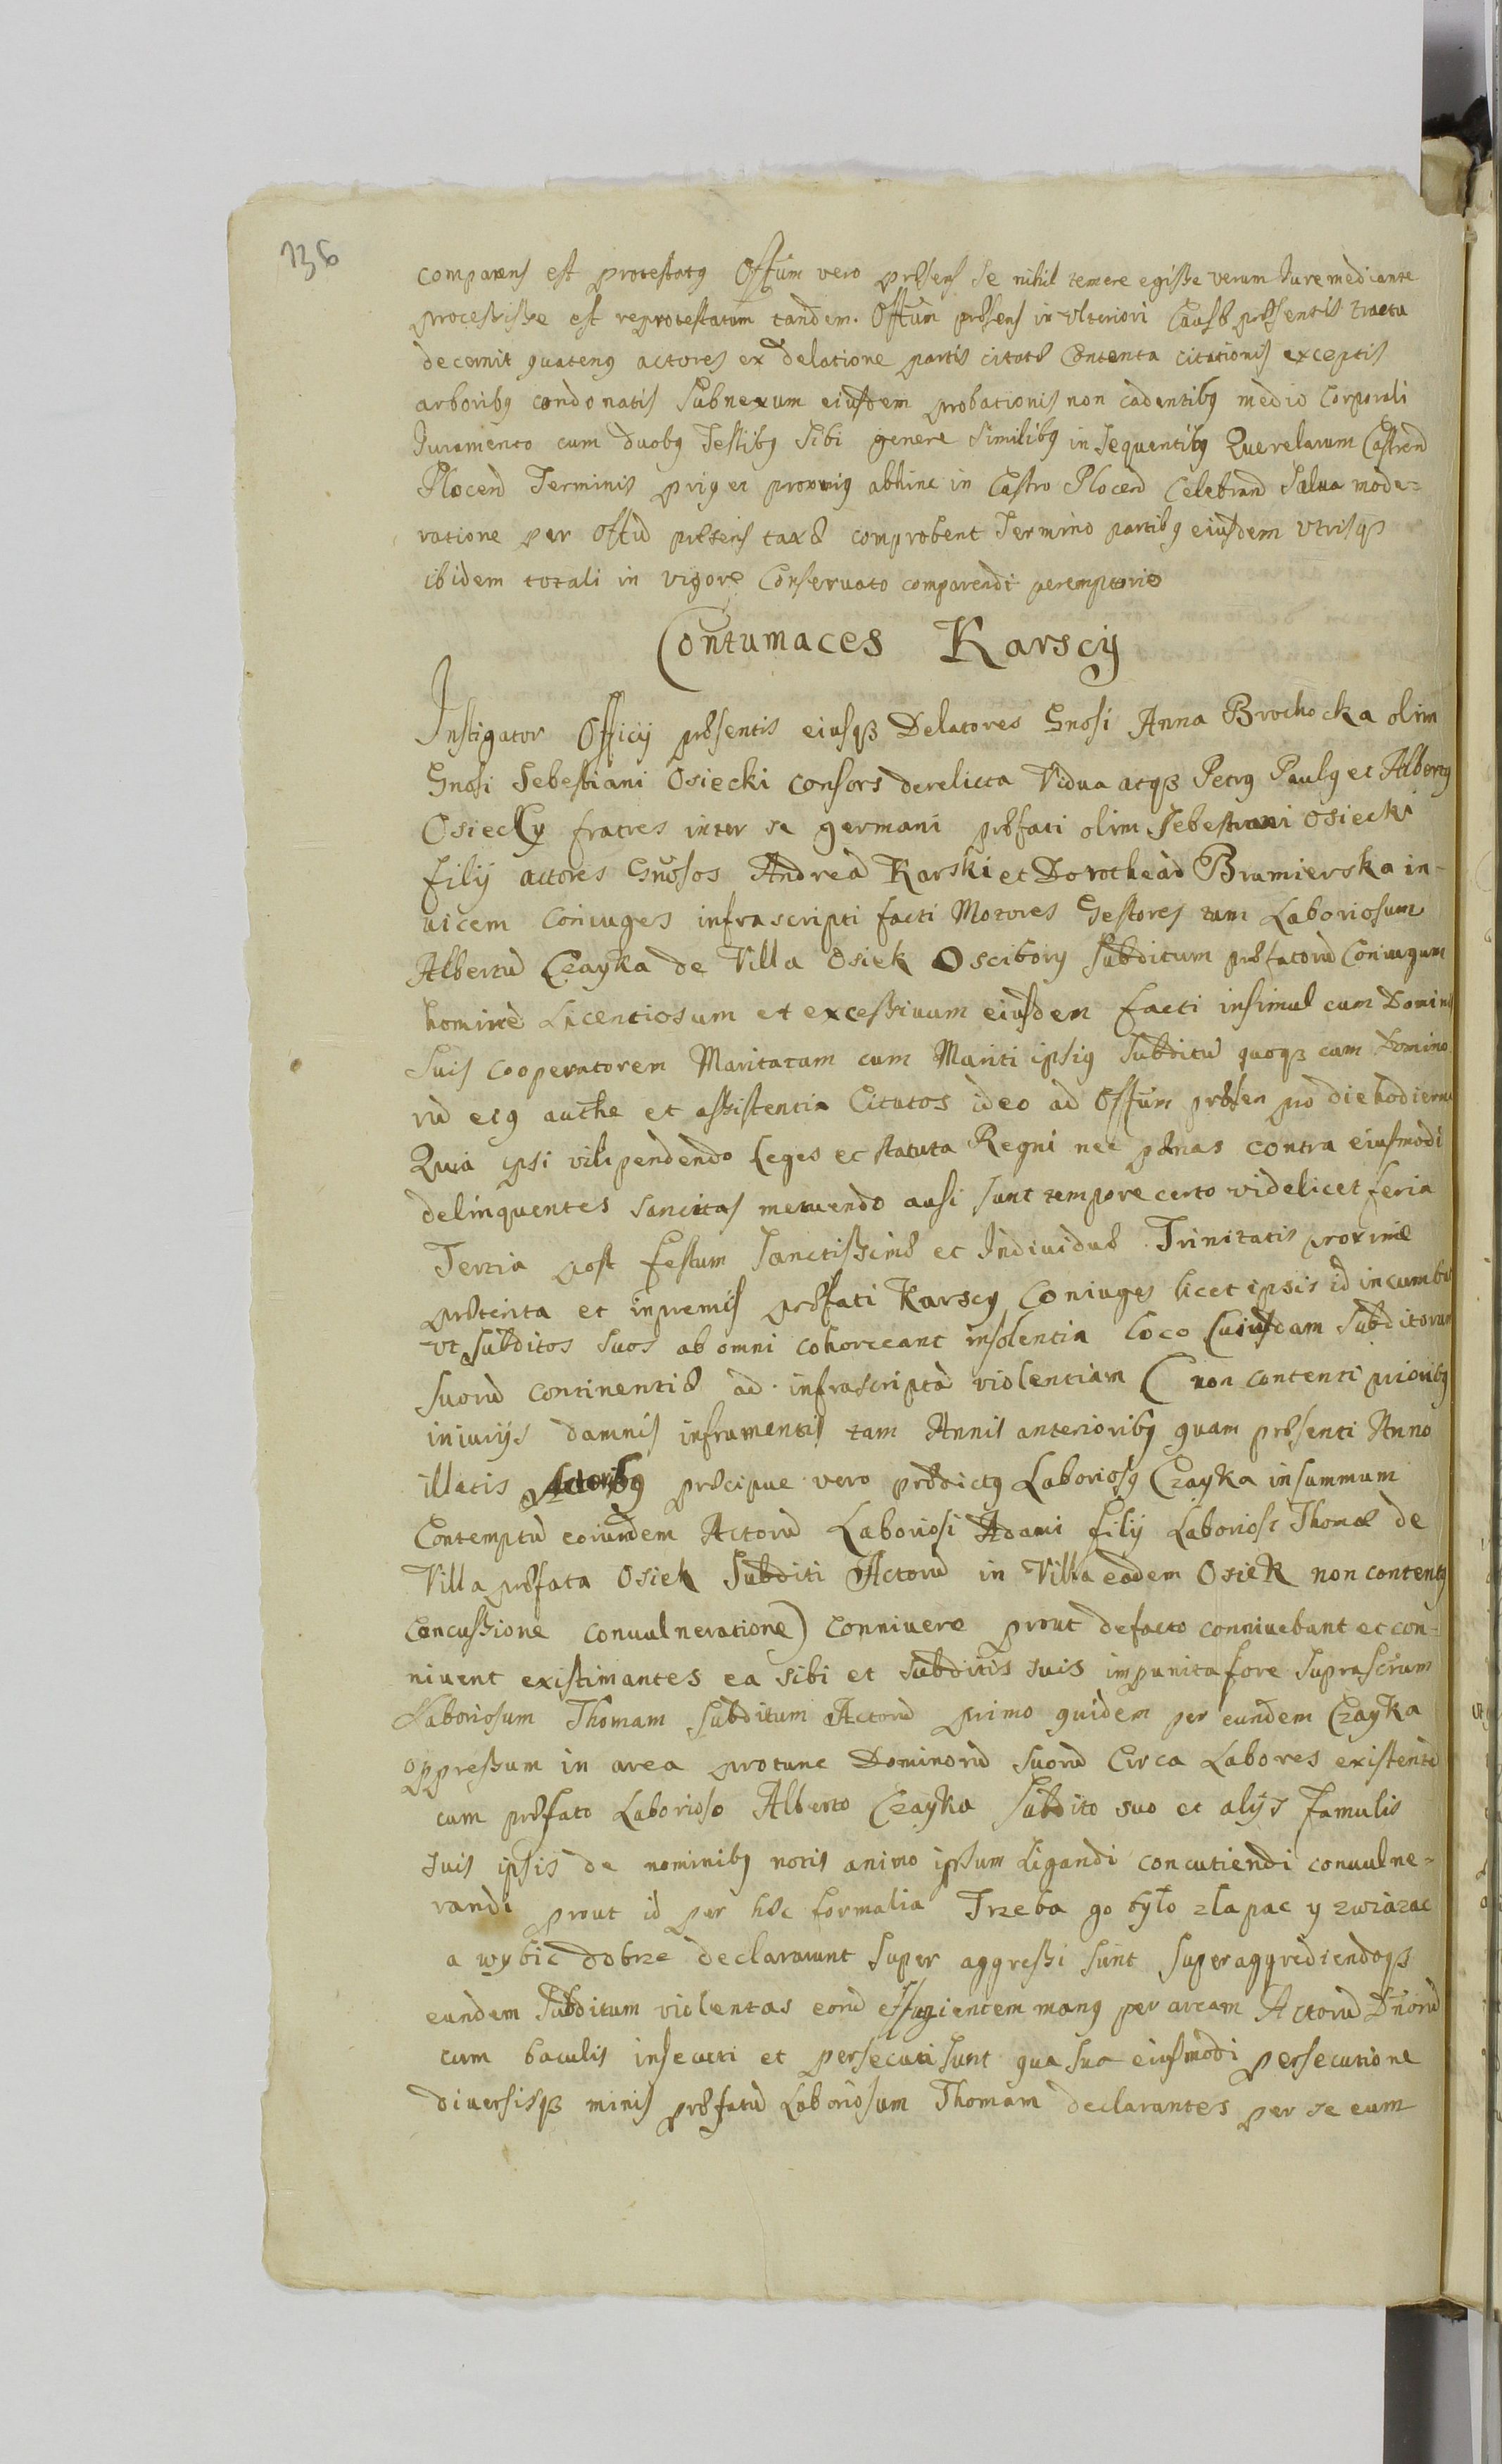 136
comparens est protestatq Offum vero prẽsens se nihil temere egisse verum Jure mediante
processisse est reprotestatum tandem. Offum prẽsens in vlteriori Causẽ prẽsentis tractu
decernit quatenq actores ex delatione partis citatẽ Contenta citationis exceptis
arboribq condonatis Subnexum eiusdem probationis non cadentibq medio Corporali
Juramento cum duobq Testibq Sibi genere Similibq in Sequentibq Querelarum Castren̄
Plocen̄ Terminis priq et proximiq abhinc in Castro Plocen̄ Celebran̄ Salua mode=
ratione per Offiū prẽsens taxẽ comprobent Termino partibq eiusdem vtrisqꝫ
ibidem totali in vigore Conseruato comparendi peremptorie
Contumaces Karscÿ
Instigator Officÿ prẽsentis eiusqꝫ Delatores Gnosi Anna Brochocka olim
Gnosi Sebestiani Osiecki consors derelicta Vidua atqꝫ Petrq Paulq et Albertq
Osieccÿ fratres inter se germani prẽfati olim Sebestiani Osiecki
filÿ actores Gnõsos Andreā Karski et Dorotheā Bramierska in-
uicem Coniuges infrascripti facti Motores Gestores tum Laboriosum
Albertū Czayka de Villa Osiek Oscibory Subditum prẽfatorū Coniugum
hominē Licentiosum et excessiuum eiusdem facti insimul cum Domini
suis Cooperatorem Maritatam cum Mariti ipsiq Subditū quoqꝫ cum Domino
rū eiq authe et assistentia Citatos ideo ad Offum prẽsen pro die hodierna
Quia ipsi vilipendendo Leges et statuta Regni nec pẽnas contra eiusmodi
delinquentes sancitas metuendo ausi sunt tempore certo videlicet feria
Tertia post festum Sanctissimẽ et Indiuiduẽ Trinitatis proximæ
prẽterita et inpremis prẽfati Karscy Coniuges licet ipsis id incumbit
vt Subditos suos ab omni cohorceant insolentia loco Cuiusdam Subditorum
suorū continentiẽ ad infrascriptā violentiam ( non contenti prioribq
iniurÿs damnis inframentis tam Annis anterioribq quam prẽsenti Anno
illatis Actoribq prẽcipue vero prẽdictq Laboriosq Czayka in summum
Contemptū eorundem Actorū Laboriosi Adami filÿ Laboriosi Thomæ de
Villa prẽfata Osiek Subditi Actorū in Villa eadem Osiek non contentq
Concussione conuulneratione) Conniuere prout defacto conniuebant et con-
niuent existimantes ea sibi et Subditis suis impunita fore suprascrum
Laboriosum Thomam Subditum Actorū primo quidem per eundem Czayka
oppressum in area protunc Dominorū suorū Circa Labores existentē
cum prẽfato Laborioso Alberto Czayka Subdito suo et alÿs famulis
suis ipsis de nominibq notis animo ipsum Ligandi concutiendi conuulne=
randi prout id per hẽc formalia Trzeba go było złapac y zwiazac
a wybic dobrze declararunt super aggressi sunt superaggrediendoqꝫ
eundem Subditum violentas eorū effugientem manq per aream Actorū Dnorū
cum baculis insecuti et persecuti sunt qua sua eiusmodi persecutione
diuersisqꝫ minis prẽfatū Laboriosum Thomam declarantes per se eum